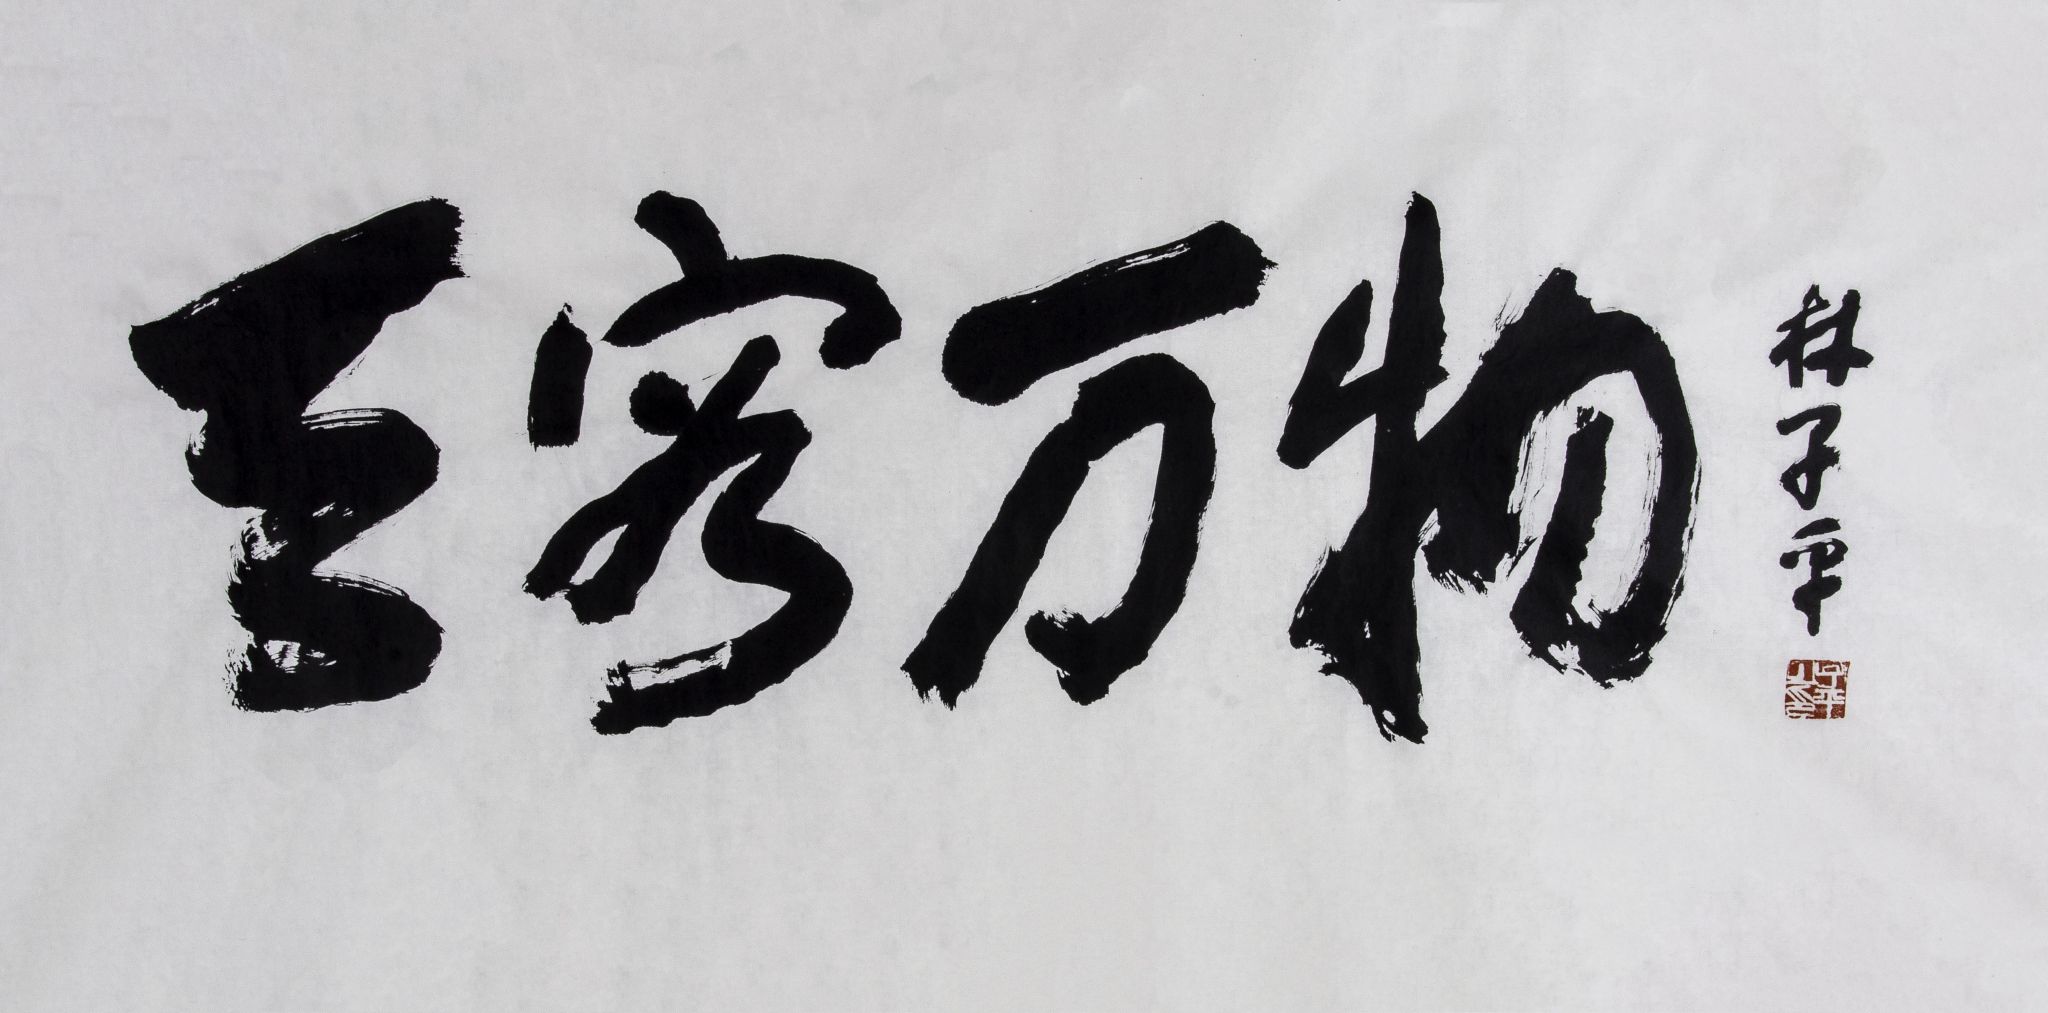 至容万物
林子平